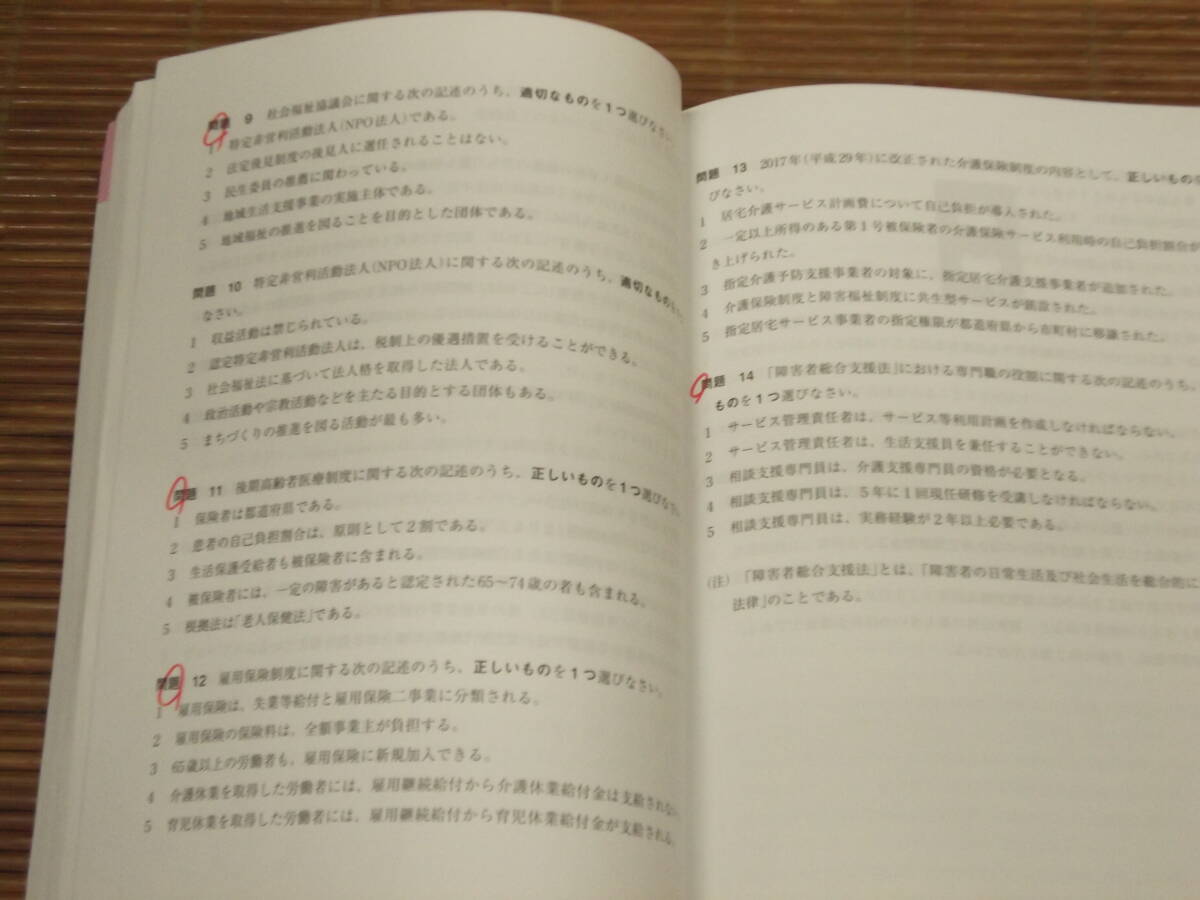 問題 9 社会福祉協議会に関する次の記述のうち、適切なものを1つ選びなさい。
1 特定非営利活動法人(NPO法人)である。
2 法定後見制度の後見人に選任されることはない。
3 民生委員の推薦に関わっている。
4 地域生活支援事業の実施主体である。
5 地域福祉の推進を図ることを目的とした団体である。
問題 10 特定非営利活動法人(NPO法人)に関する次の記述のうち、適切なものを1
なさい。
1 収益活動は禁じられている。
2 認定特定非営利活動法人は、税制上の優遇措置を受けることができる。
3 社会福祉法に基づいて法人格を取得した法人である。
4 政治活動や宗教活動などを主たる目的とする団体もある。
5 まちづくりの推進を図る活動が最も多い。
問題 11 後期高齢者医療制度に関する次の記述のうち、正しいものを1つ選びなさい。
1 保険者は都道府県である。
2 患者の自己負担割合は、原則として2割である。
3 生活保護受給者も被保険者に含まれる。
4 被保険者には、一定の障害があると認定された65〜74歳の者も含まれる。
5 根拠法は「老人保健法」である。
問題 12 雇用保険制度に関する次の記述のうち、正しいものを1つ選びなさい。
1 雇用保険は、失業等給付と雇用保険二事業に分類される。
2 雇用保険の保険料は、全額事業主が負担する。
3 65歳以上の労働者も、雇用保険に新規加入できる。
4 介護休業を取得した労働者には、雇用継続給付から介護休業給付金は支給されない。
5 育児休業を取得した労働者には、雇用継続給付から育児休業給付金が支給される。
問題 13 2017年(平成29年)に改正された介護保険制度の内容として、正しいものを
びなさい。
1 居宅介護サービス計画費について自己負担が導入された。
2 一定以上所得のある第1号被保険者の介護保険サービス利用時の自己負担割合が
き上げられた。
3 指定介護予防支援事業者の対象に、指定居宅介護支援事業者が追加された。
4 介護保険制度と障害福祉制度に共生型サービスが創設された。
5 指定居宅サービス事業者の指定権限が都道府県から市町村に移譲された。
問題 14 「障害者総合支援法」における専門職の役割に関する次の記述のうち、
ものを1つ選びなさい。
1 サービス管理責任者は、サービス等利用計画を作成しなければならない。
2 サービス管理責任者は、生活支援員を兼任することができない。
3 相談支援専門員は、介護支援専門員の資格が必要となる。
4 相談支援専門員は、5年に1回現任研修を受講しなければならない。
5 相談支援専門員は、実務経験が2年以上必要である。
(注) 「障害者総合支援法」とは、「障害者の日常生活及び社会生活を総合的に
法律」のことである。